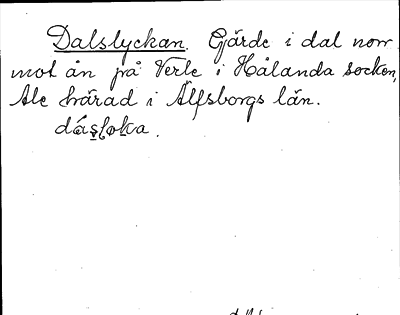 Dalslyckan. Gärde i dal norr
mot ån på Verle i Hålanda socken,
Ale härad i Älfsborgs län.